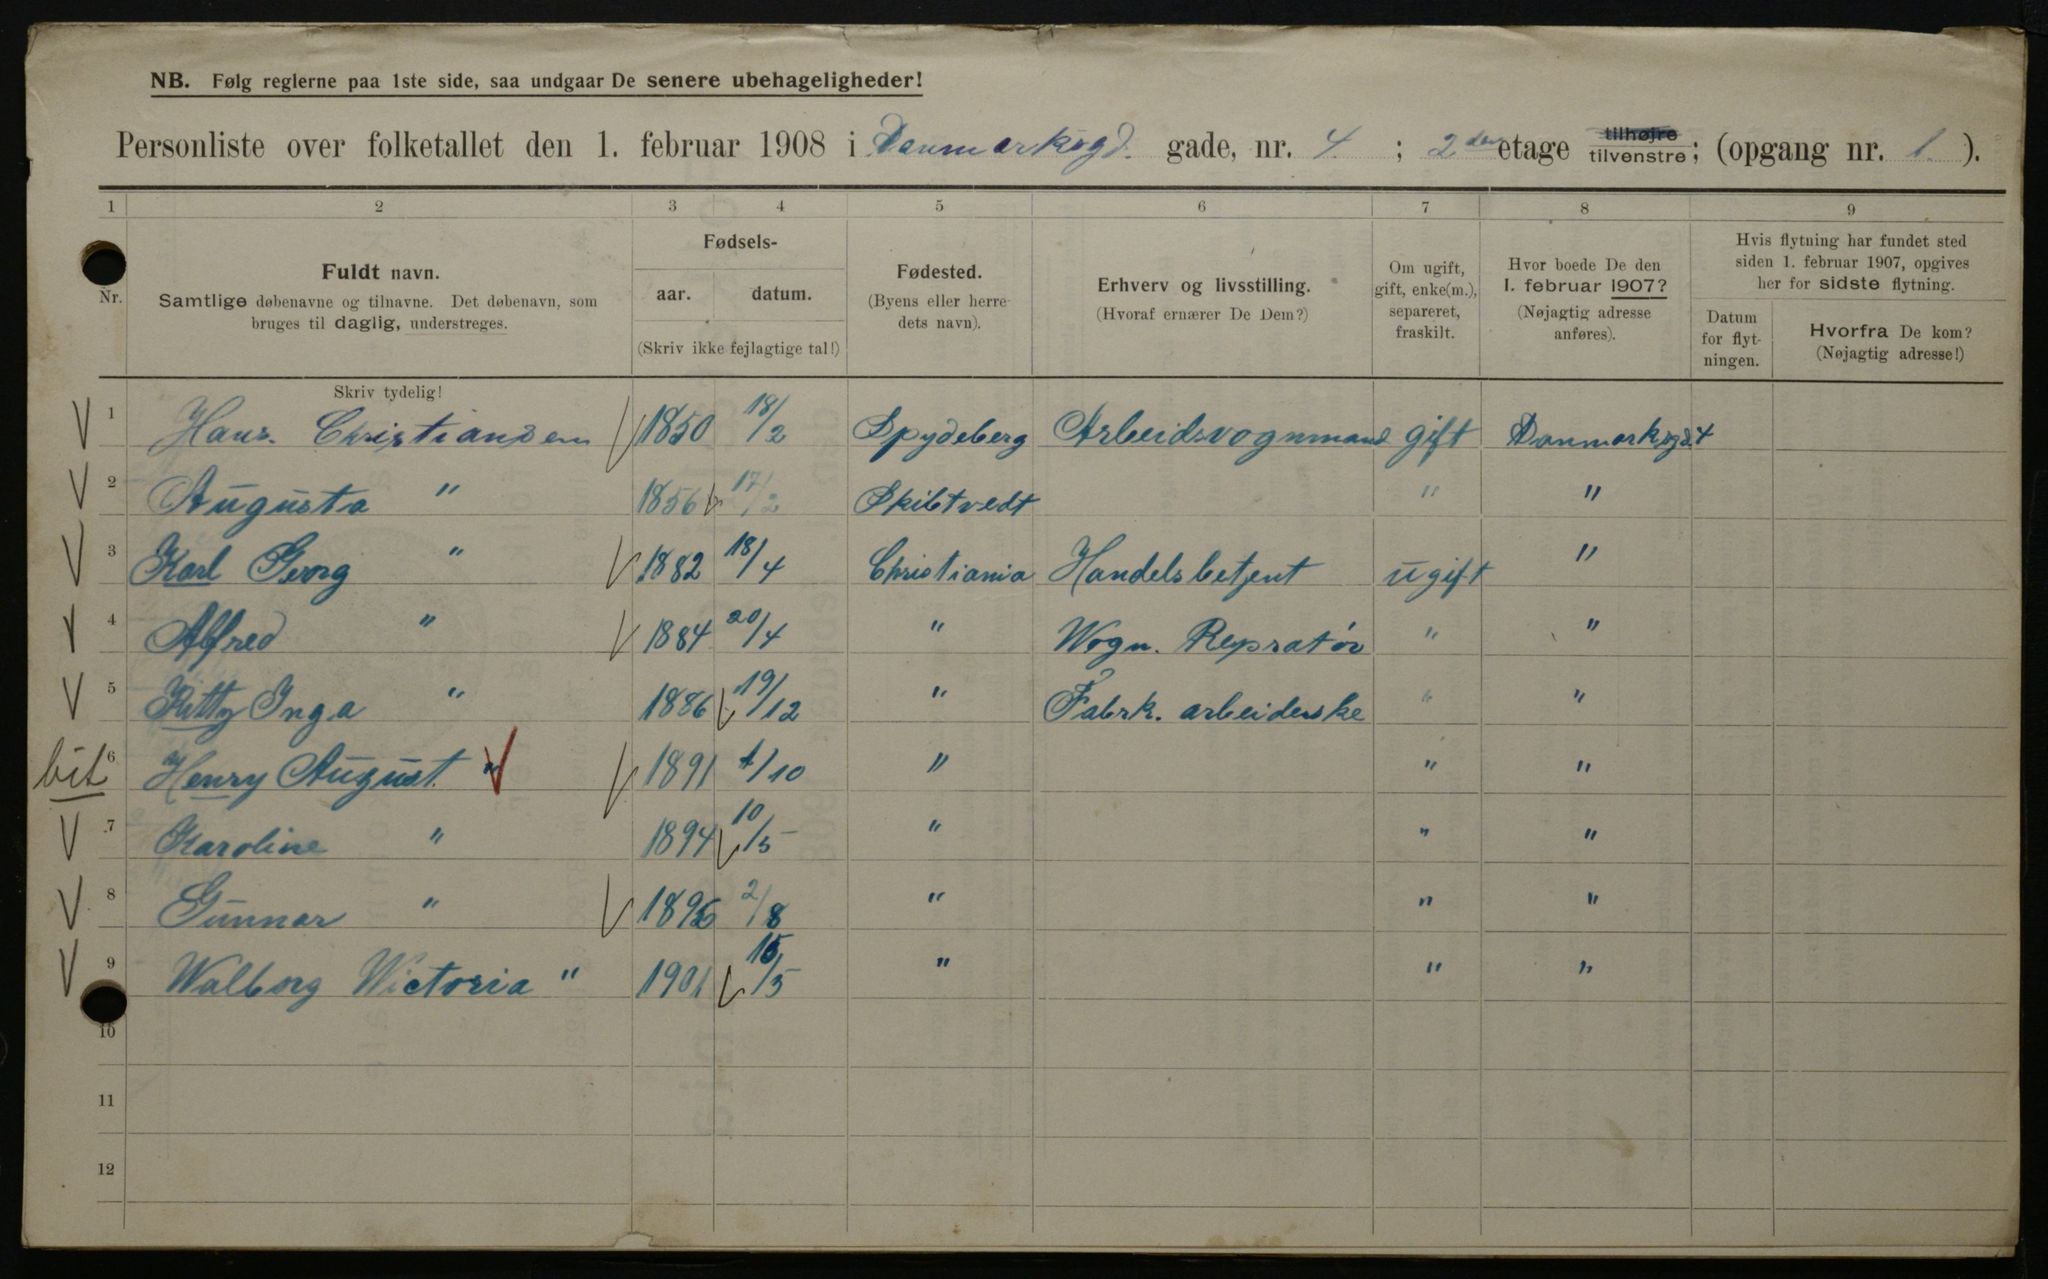 NB. Følg reglerne paa 1ste side, saa undgaar De senere ubehageligheder!
Personliste over folketallet den 1. februar 1908 i Danmarksgd. gade, nr. 4 ; 2den etage tilhøjre tilvenstre ; (opgang nr. 1. ).
1 2 3 4 5 6 7 8 9
Nr.
Fuldt navn.
Samtlige døbenavne og tilnavne. Det døbenavn, som
bruges til daglig, understreges.
Fødsels-
aar. datum.
(Skriv ikke fejlagtige tal!)
Fødested.
(Byens eller herre-
dets navn).
Erhverv og livsstilling.
(Hvoraf ernærer De Dem?)
Om ugift,
gift, enke(m.),
separeret,
fraskilt.
Hvor boede De den
1. februar 1907?
(Nøjagtig adresse
anføres).
Hvis flytning har fundet sted
siden 1. februar 1907, opgives
her for sidste flytning.
Datum
for flyt-
ningen.
Hvorfra De kom?
(Nøjagtig adresse!)
Skriv tydelig!
1 Hans. Christiansen 1850 18/2 Spydeberg Arbeidsvognmand gift Danmarksgd. 4
2 Augusta " 1856 17/2 Skibtvedt " "
3 Karl Georg " 1882 18/4 Christiania Handelsbetjent ugift "
4 Alfred " 1884 20/4 " Wogn. Repsratør " "
5 Kitty Inga " 1886 19/12 " Fabrk. arbeiderske " "
bit 6 Henry August. " 1891 /10 " " "
7 Karoline " 1894 10/5 " " "
8 Gunnar " 1896 2/8 " " "
9 Walborg Wictoria " 1901 15/5 " " "
10
11
12